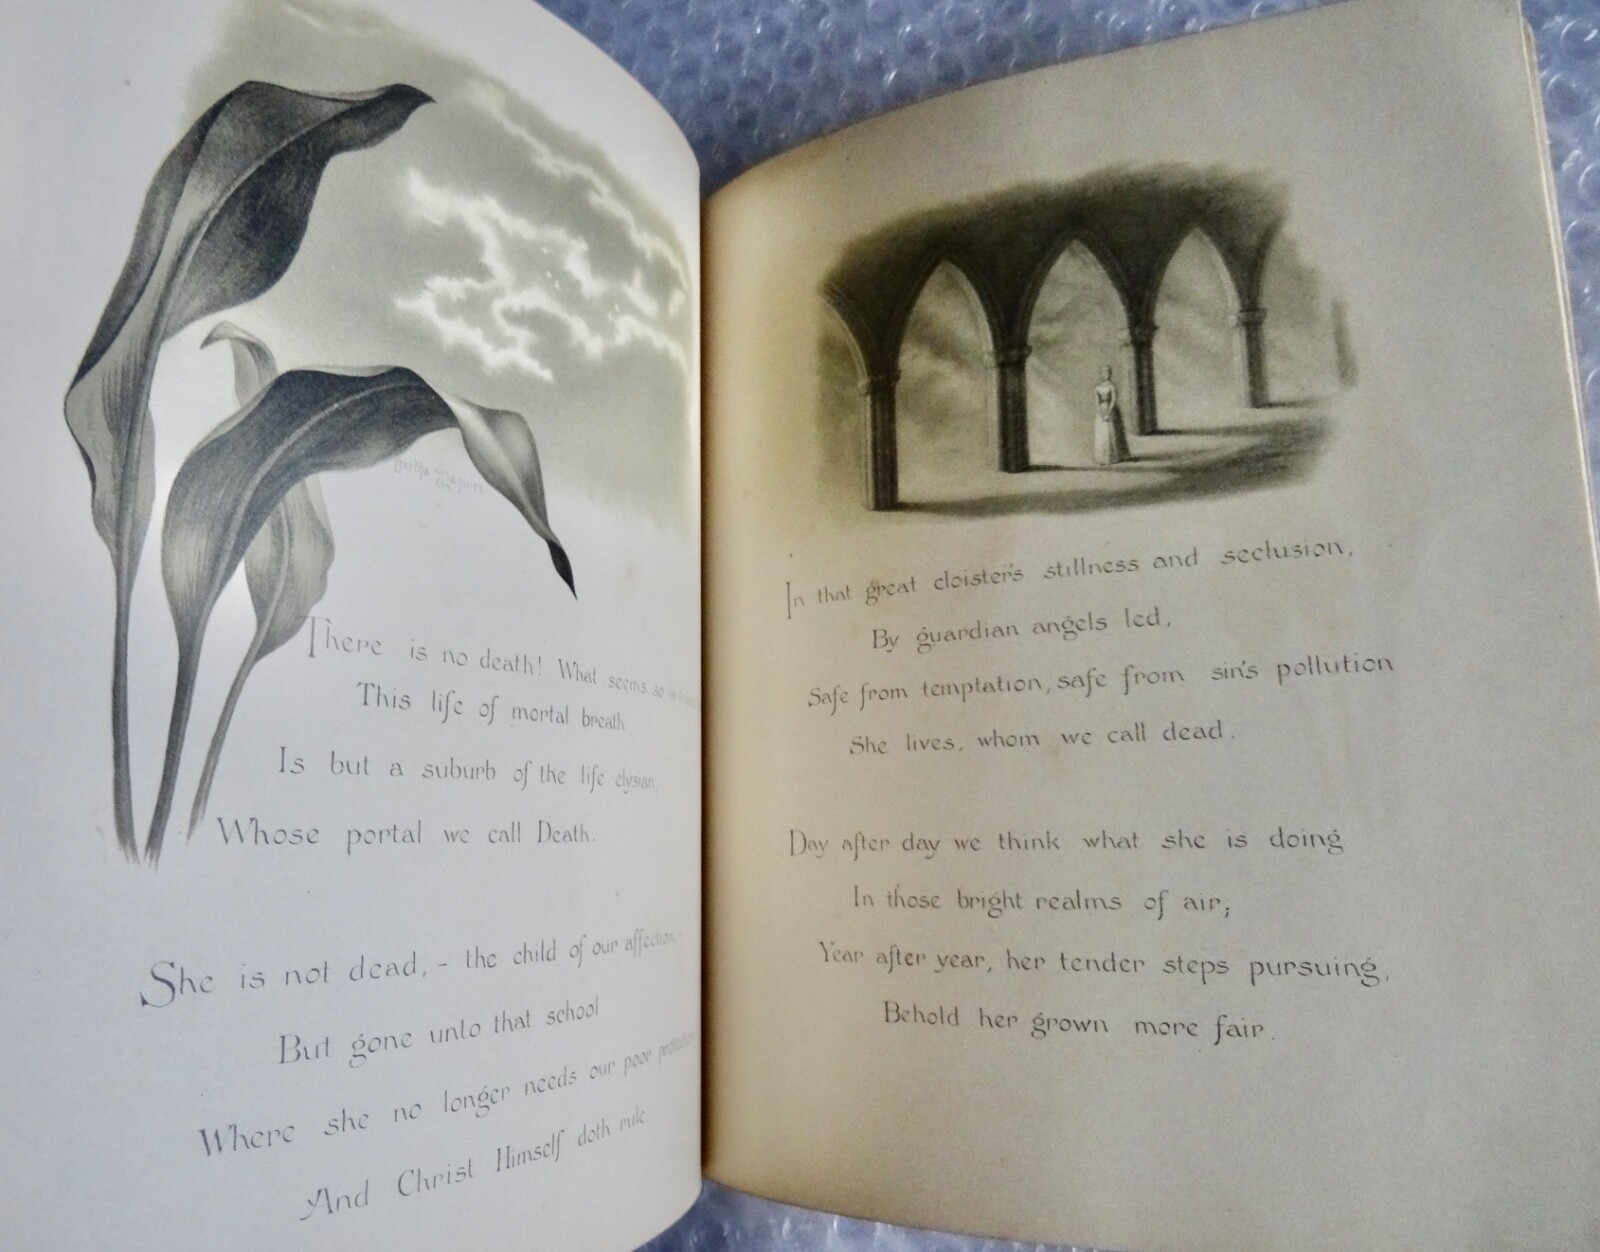 Bertha Maguire
There is no death! What seems so is
This life of mortal breath
Is but a suburb of the life elysian,
Whose portal we call Death.
She is not dead, - the child of our affection, -
But gone unto that school
Where she no longer needs our poor protection
And Christ Himself doth rule
In that great cloister's stillness and seclusion,
By guardian angels led,
Safe from temptation, safe from sin's pollution
She lives, whom we call dead.
Day after day we think what she is doing
In those bright realms of air;
Year after year, her tender steps pursuing,
Behold her grown more fair.